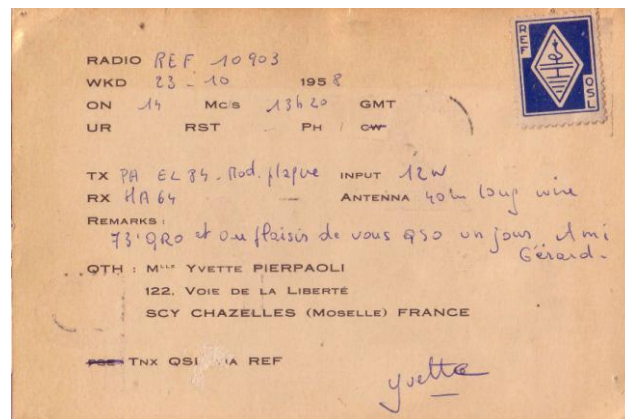 REF QSL
RADIO REF 10903
WKD 23-10 1958
ON 14 MC/S 13h20 GMT
UR RST PH / CW
TX PA EL84. Mod. plaque INPUT 12W
RX HA64 ANTENNA 40m long wire
REMARKS:
73' QRO et au plaisir de vous QSO un jour Ami
Gérard.
QTH : MLLE YVETTE PIERPAOLI
122, VOIE DE LA LIBERTÉ
SCY CHAZELLES (MOSELLE) FRANCE
PSE TNX QSL VIA REF
yvette